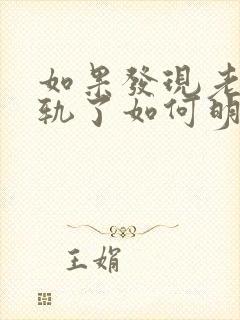 如果發現老
軌了如何明
王娟